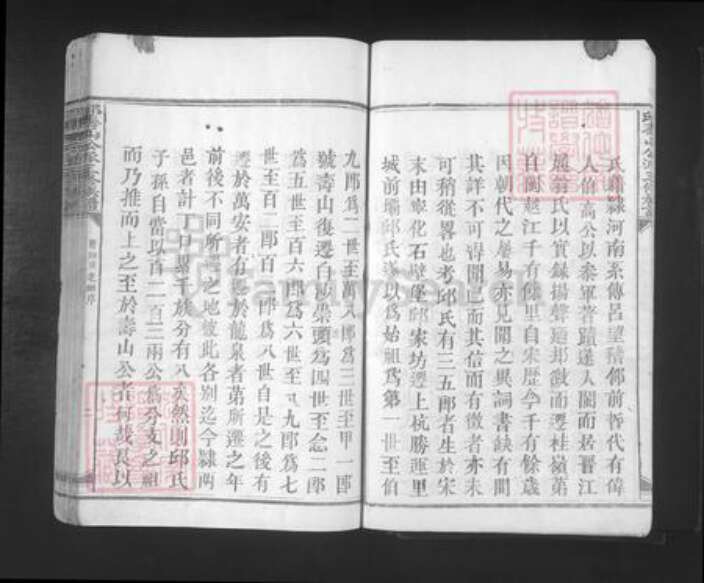 氏籍隸河南系傳呂望
人伯高公以參軍著蹟遂入閩而居晉江
氏以實錄揚聲避邦徽而遷桂嶺第
自閩越江千有餘里自宋歷今千有餘歲
因朝代之屢易亦見聞之異詞書缺有間
其詳不可得聞已而其信而有徵者亦未
可稍從畧也考邱氏有三五郎者生於宋
末由寧化石壁鄉邱宋坊遷上杭勝運里
城前壩邱氏遂以爲始祖爲第一世至伯
九郎爲二世至萬八郎爲三世至甲一郎
號壽山復遷白砂梁頭爲四世至念二郎
爲五世至百六郎爲六世至九郎爲七
世至百二郎百郎爲八世自是之後有
遷於萬安者有遷於龍泉者第所遷之年
前後不同所遷之地彼此各別迄今隸兩
邑者計丁口累千族分有八大然則邱氏
子孫自當以百二百三兩公爲分支之祖
而乃推而上之至於壽山公者何哉良以